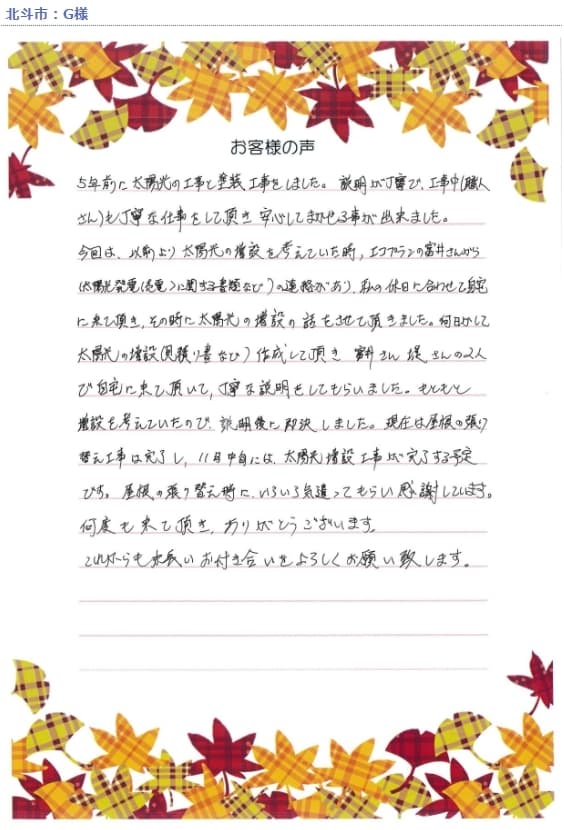 北斗市：G様
お客様の声
5年前に太陽光の工事と塗装工事をしました。説明が丁寧で、工事中(職人
さん)も丁寧な仕事をして頂き安心してまかせる事が出来ました。
今回は、以前より太陽光の増設を考えていた時、エコプランの富井さんから
(太陽光発電(売電)に関する書類など)の連絡があり、私の休日に合わせて自宅
に来て頂き、その時に太陽光の増設の話をさせて頂きました。何日かして
太陽光の増設(見積り書など)作成して頂き 富井さん 堤さんの2人
で自宅に来て頂いて、丁寧な説明をしてもらいました。もともと
増設を考えていたので、説明後に即決しました。現在は屋根の張り
替え工事は完了し、11月中旬には、太陽光増設工事が完了する予定
です。屋根の張り替え時に、いろいろ気遣ってもらい感謝しています。
何度も来て頂き、ありがとうございます。
これからも末長いお付き合いをよろしくお願い致します。